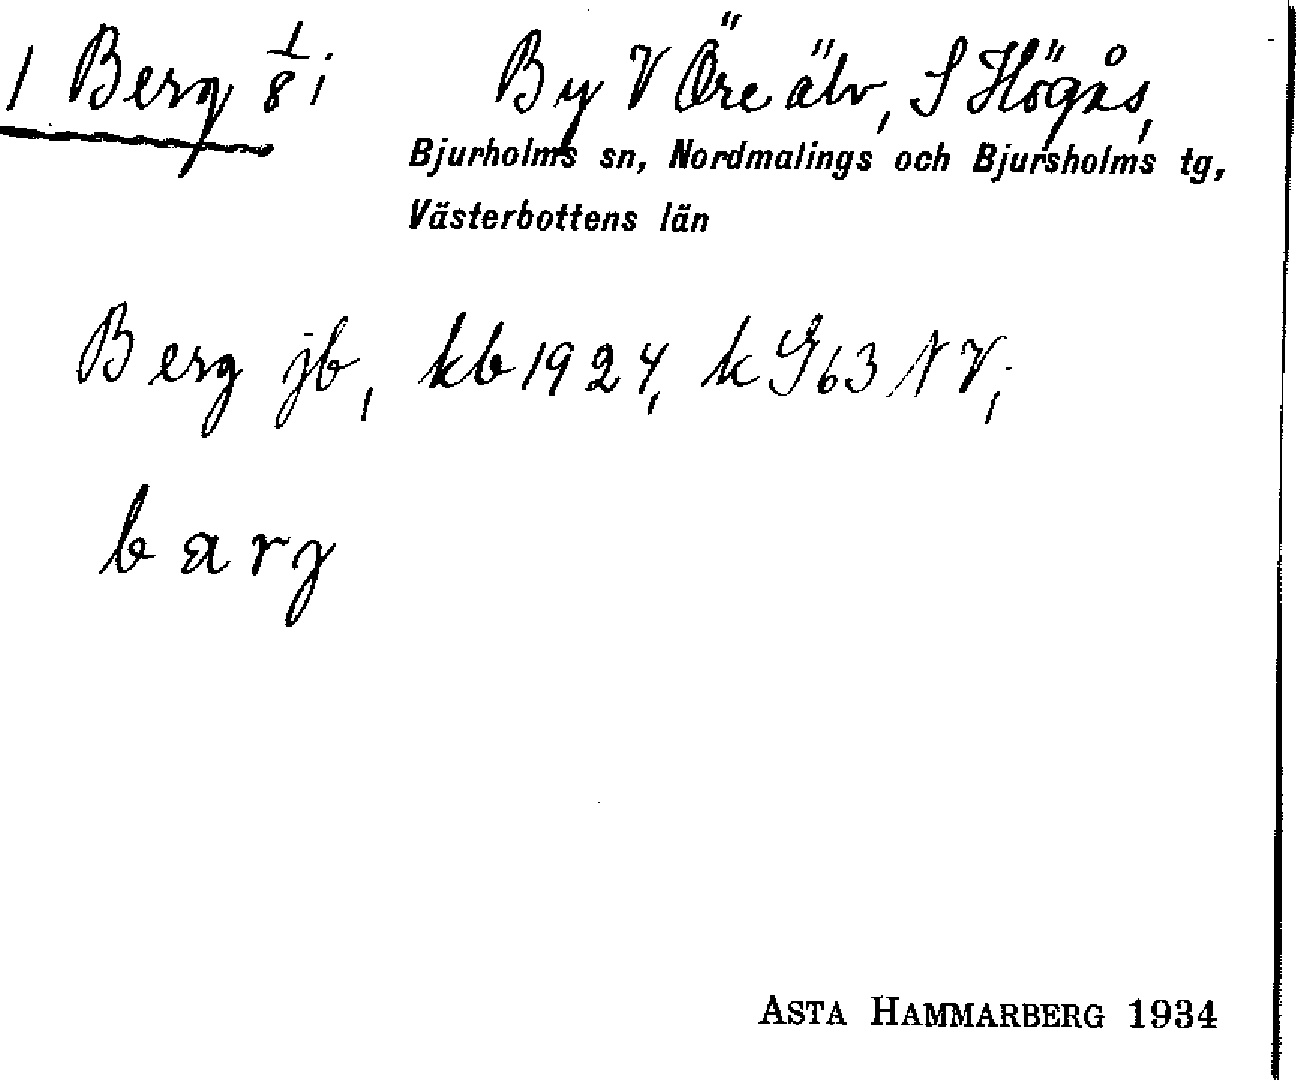 1 Berg 1/8 i By V Öre älv, S Högås,
Bjurholms sn, Nordmalings och Bjursholms tg,
Västerbottens län
Berg jb, kb 1924, k G63 NV;
barj
ASTA HAMMARBERG 1934